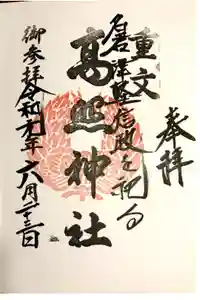 奉拝
重文
名君津軽信政を祀る
高照神社
御参拝令和元年六月二十三日